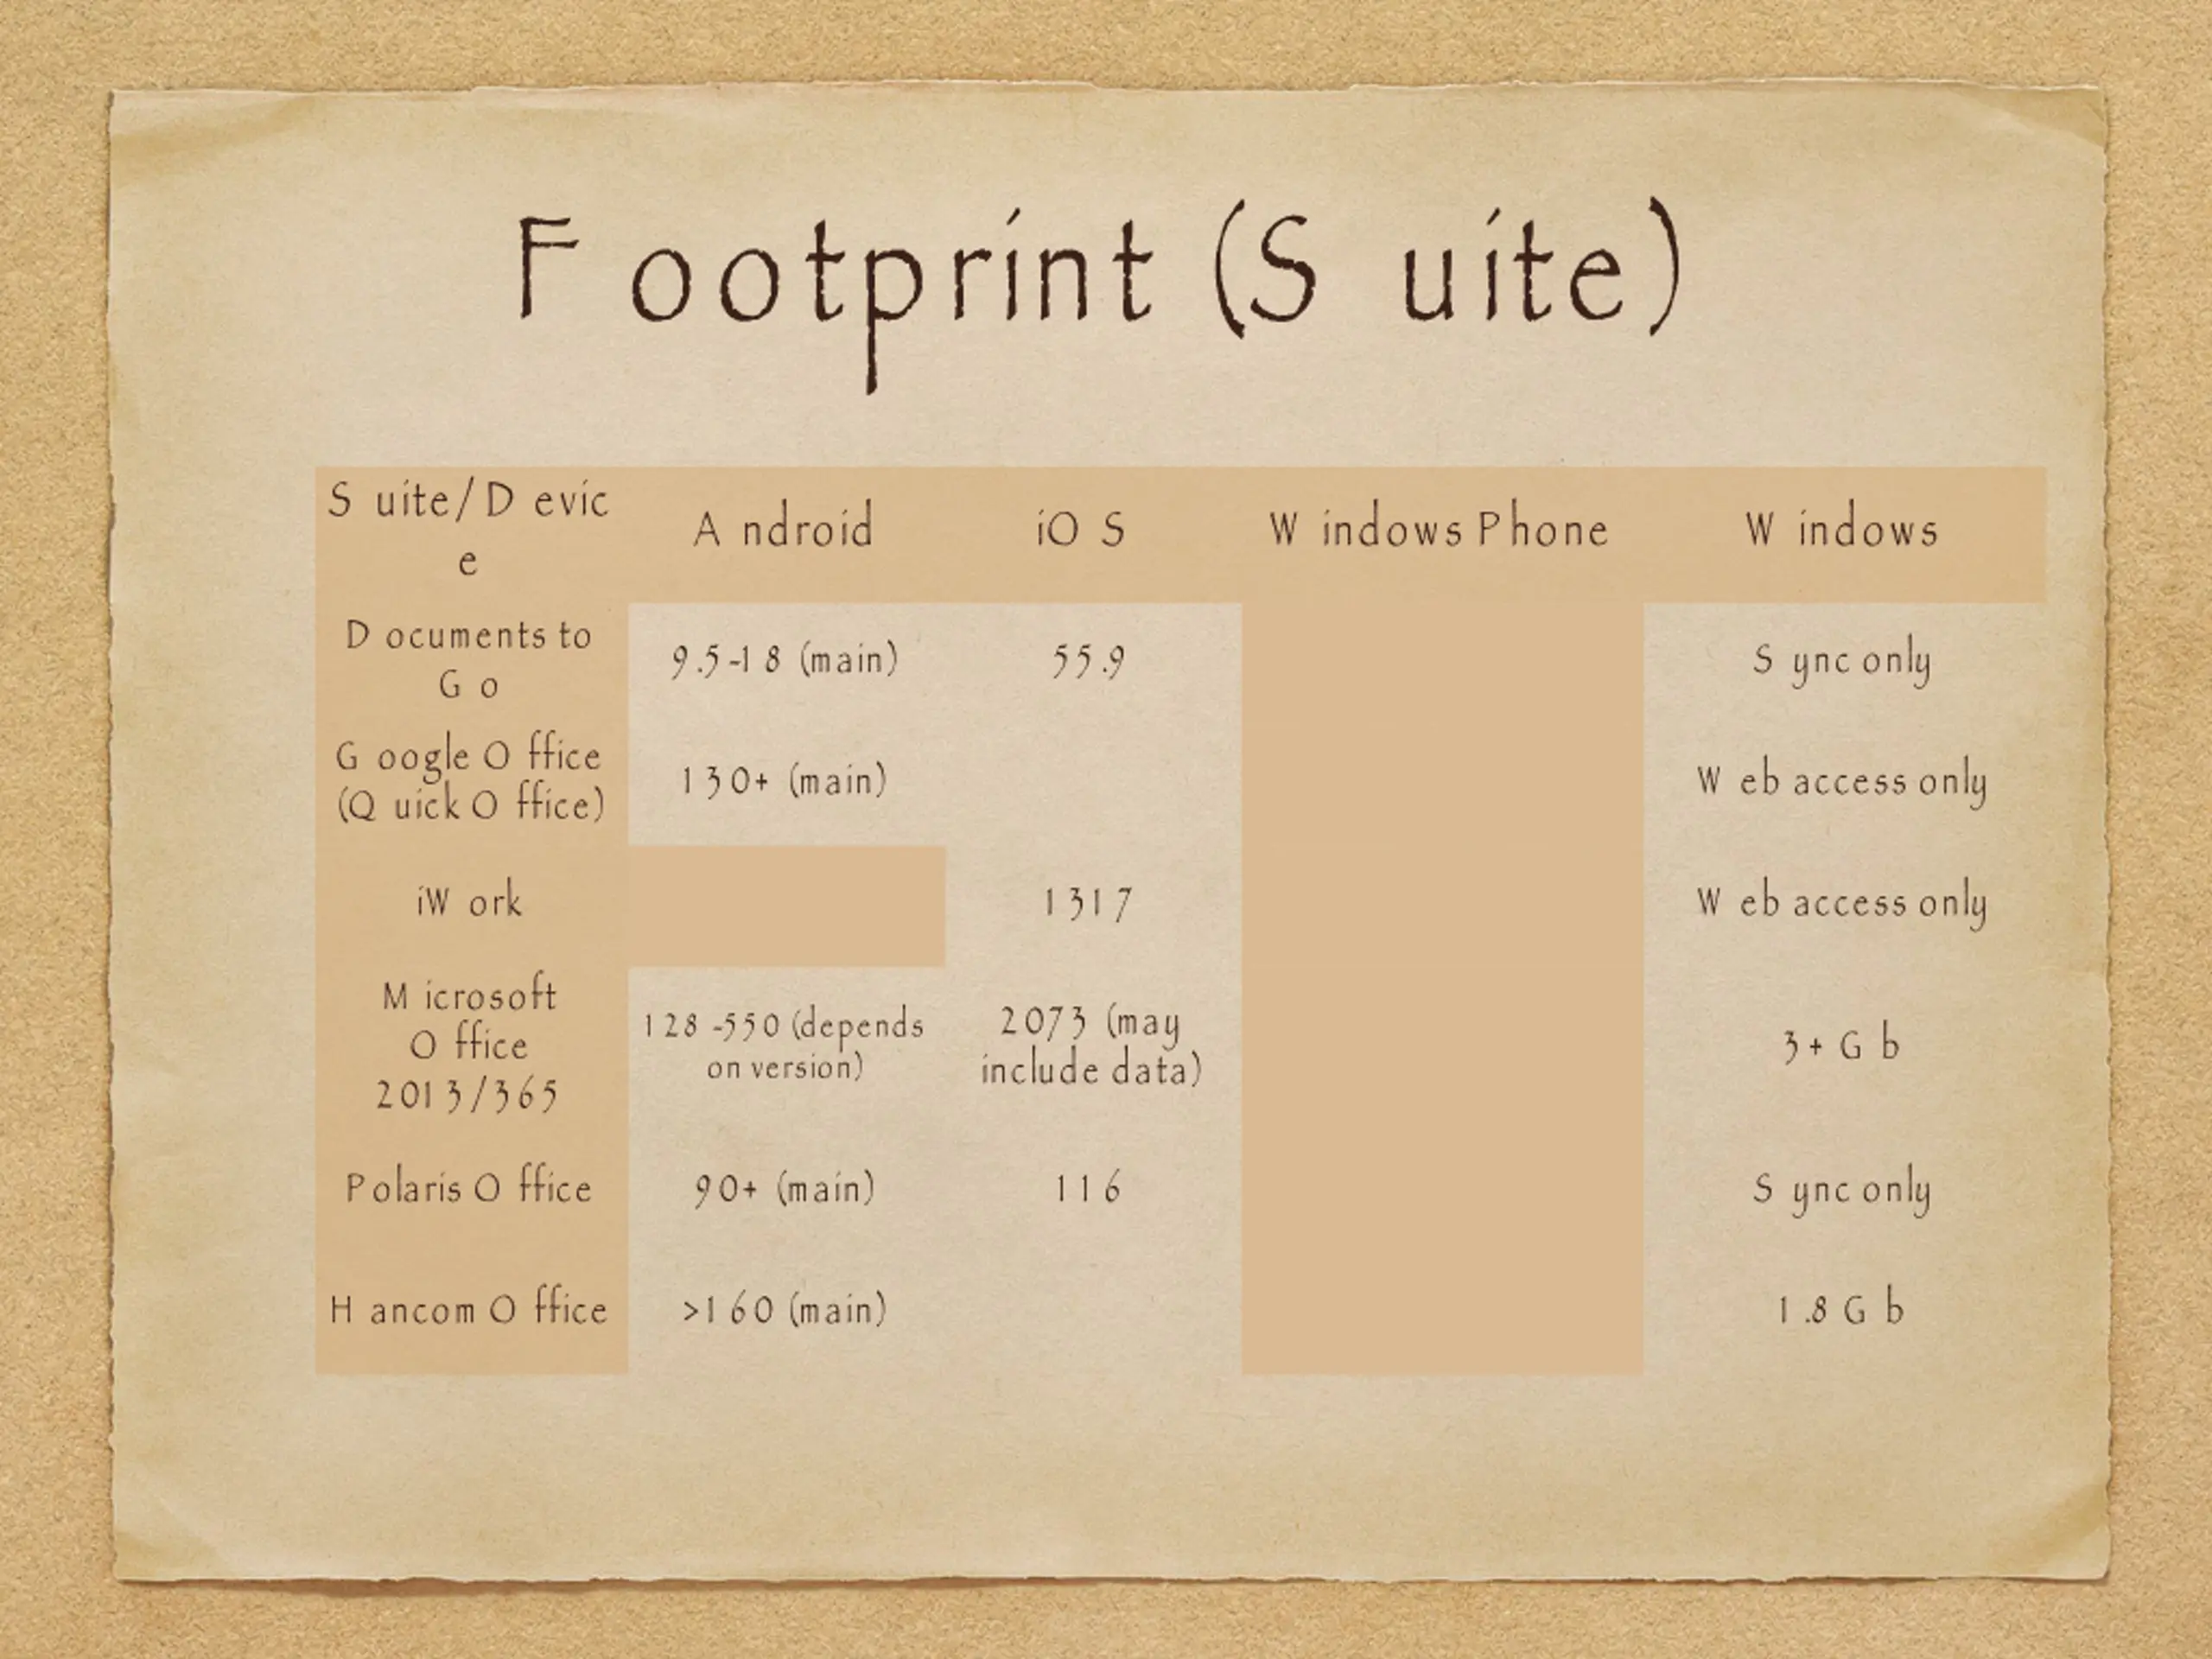 Footprint (Suite)
Suite/Devic
e
Android
iOS
Windows Phone
Windows
Documents to
Go
9.5-18 (main)
55.9
Sync only
Google Office
(Quick Office)
130+ (main)
Web access only
iWork
1317
Web access only
Microsoft
Office
2013/365
128-550 (depends
on version)
2073 (may
include data)
3+ Gb
Polaris Office
90+ (main)
116
Sync only
Hancom Office
>160 (main)
1.8 Gb